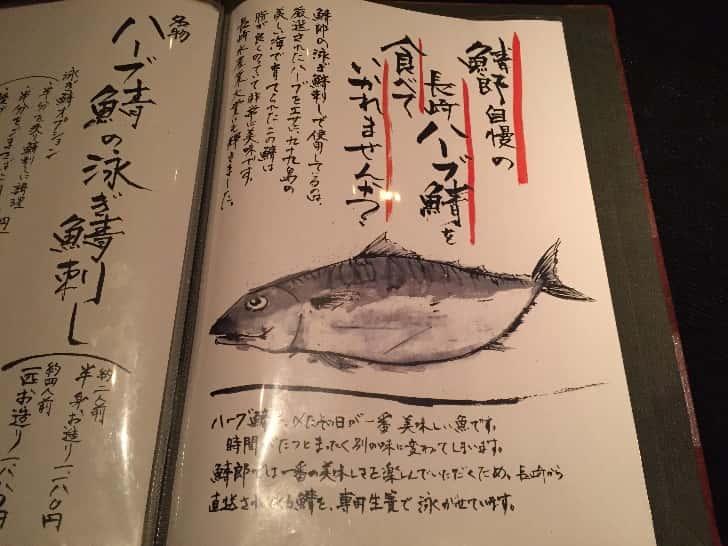 鯖郎自慢の
長崎ハーブ鯖を
食べて
いかれませんか?
鯖郎の泳ぎ鯖刺しで使用しているのは、
厳選されたハーブを工サに九十九島の
美しい海で育てられたこの鯖は
脂が良くのっていて非常に美味です。
長崎水産業大賞にも輝きました。
ハーブ鯖は、〆たその日が一番美味しい魚です。
時間がたつとまったく別の味に変わってしまいます。
鯖郎では一番の美味しさを楽しんでいただくため、長崎から
直送される鯖を、専用生簀で泳がせています。
名物
ハーブ鯖の泳ぎ鯖刺し
泳ぎ鯖オプション
半分を炙り鯖刺しに調理
約二人前
半身お造り 一、一八〇円
約四人前
一匹お造り 一、八八〇円